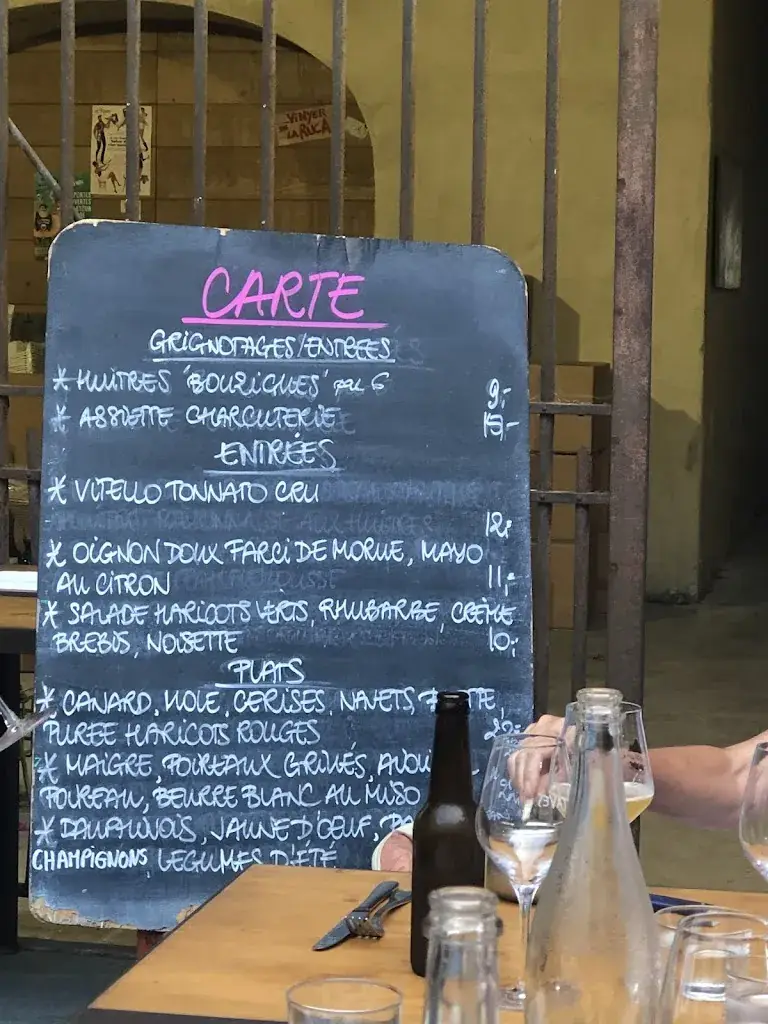 VINYER
DE LA RUCA
CARTE
GRIGNOTAGES/ENTREES
* HUITRES 'BOUZIGUES' par 6 9,-
* ASSIETTE CHARCUTERIE
ENTRÉES
* VITELLO TONNATO CRU
12,-
* OIGNON DOUX FARCI DE MORUE, MAYO
AU CITRON 11,-
* SALADE HARICOTS VERTS, RHUBARBE, CRÈME
BREBIS, NOISETTE 10,-
PLATS
* CANARD, MOLE, CERISES, NAVETS,
PUREE HARICOTS ROUGES
* MAIGRE, POIREAUX GRILLÉS,
POIREAU, BEURRE BLANC AU MISO
* DAUPHINOIS, JAUNE D'OEUF,
CHAMPIGNONS, LEGUMES D'ÉTÉ